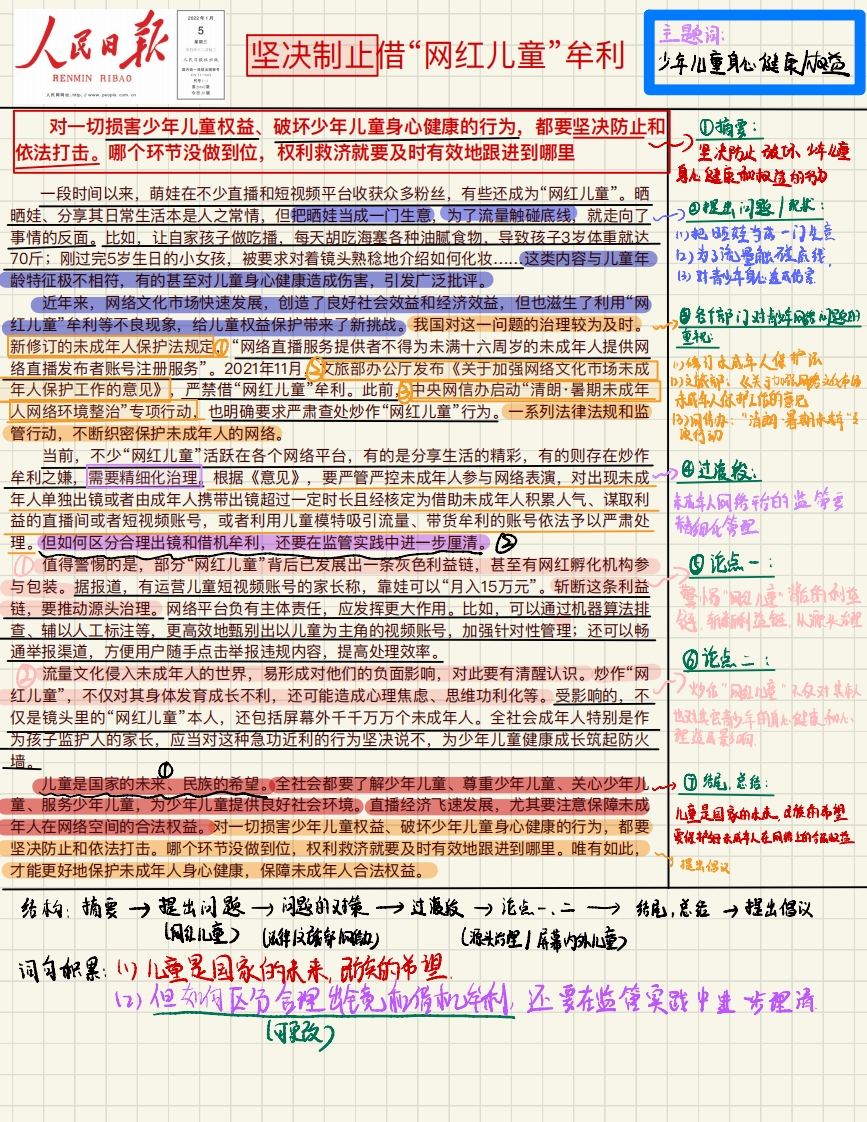 人民日报
RENMIN RIBAO
人民网网址:http://www.people.com.cn
2022年1月
5
星期三
人民日报社出版
坚决制止借“网红儿童”牟利
主题词:
少年儿童身心健康/权益
对一切损害少年儿童权益、破坏少年儿童身心健康的行为，都要坚决防止和
依法打击。哪个环节没做到位，权利救济就要及时有效地跟进到哪里
一段时间以来，萌娃在不少直播和短视频平台收获众多粉丝，有些还成为“网红儿童”。晒
晒娃、分享其日常生活本是人之常情，但把晒娃当成一门生意，为了流量触碰底线，就走向了
事情的反面。比如，让自家孩子做吃播，每天胡吃海塞各种油腻食物，导致孩子3岁体重就达
70斤；刚过完5岁生日的小女孩，被要求对着镜头熟稔地介绍如何化妆……这类内容与儿童年
龄特征极不相符，有的甚至对儿童身心健康造成伤害，引发广泛批评。
近年来，网络文化市场快速发展，创造了良好社会效益和经济效益，但也滋生了利用“网
红儿童”牟利等不良现象，给儿童权益保护带来了新挑战。我国对这一问题的治理较为及时。
新修订的未成年人保护法规定，“网络直播服务提供者不得为未满十六周岁的未成年人提供网
络直播发布者账号注册服务”。2021年11月，文旅部办公厅发布《关于加强网络文化市场未成
年人保护工作的意见》，严禁借“网红儿童”牟利。此前，中央网信办启动“清朗·暑期未成年
人网络环境整治”专项行动，也明确要求严肃查处炒作“网红儿童”行为。一系列法律法规和监
管行动，不断织密保护未成年人的网络。
当前，不少“网红儿童”活跃在各个网络平台，有的是分享生活的精彩，有的则存在炒作
牟利之嫌，需要精细化治理。根据《意见》，要严管严控未成年人参与网络表演，对出现未成
年人单独出镜或者由成年人携带出镜超过一定时长且经核定为借助未成年人积累人气、谋取利
益的直播间或者短视频账号，或者利用儿童模特吸引流量、带货牟利的账号依法予以严肃处
理。但如何区分合理出镜和借机牟利，还要在监管实践中进一步厘清。②
① 值得警惕的是，部分“网红儿童”背后已发展出一条灰色利益链，甚至有网红孵化机构参
与包装。据报道，有运营儿童短视频账号的家长称，靠娃可以“月入15万元”。斩断这条利益
链，要推动源头治理。网络平台负有主体责任，应发挥更大作用。比如，可以通过机器算法排
查、辅以人工标注等，更高效地甄别出以儿童为主角的视频账号，加强针对性管理；还可以畅
通举报渠道，方便用户随手点击举报违规内容，提高处理效率。
② 流量文化侵入未成年人的世界，易形成对他们的负面影响，对此要有清醒认识。炒作“网
红儿童”，不仅对其身体发育成长不利，还可能造成心理焦虑、思维功利化等。受影响的，不
仅是镜头里的“网红儿童”本人，还包括屏幕外千千万万个未成年人。全社会成年人特别是作
为孩子监护人的家长，应当对这种急功近利的行为坚决说不，为少年儿童健康成长筑起防火
墙。
①
儿童是国家的未来、民族的希望。全社会都要了解少年儿童、尊重少年儿童、关心少年儿
童、服务少年儿童，为少年儿童提供良好社会环境。直播经济飞速发展，尤其要注意保障未成
年人在网络空间的合法权益。对一切损害少年儿童权益、破坏少年儿童身心健康的行为，都要
坚决防止和依法打击。哪个环节没做到位，权利救济就要及时有效地跟进到哪里。唯有如此，
才能更好地保护未成年人身心健康，保障未成年人合法权益。
①摘要：
坚决防止破坏少年儿童
身心健康和权益的行为
②提出问题/现状：
(1)把晒娃当成一门生意
(2)为了流量触碰底线
(3)对青少年身心造成伤害
③各个部门对青少年网络问题的
重视：
(1)修订未成年人保护法
(2)文旅部：《关于加强网络文化市场
未成年人保护工作的意见
(3)网信办：“清朗·暑期未成年”专
项行动
④过渡段：
未成年人网络平台的监管要
精细化管理
⑤论点一：
警惕“网红儿童”背后的利益
链，斩断利益链，从源头治理
⑥论点二：
炒作“网红儿童”不仅对其本人
也对其它青少年的身心健康和心
理造成影响
⑦结尾，总结：
儿童是国家的未来，民族的希望
要保护好未成年人在网络上的合法权益
提出倡议
结构：摘要→提出问题→问题的对策→过渡段→论点一、二→结尾，总结→提出倡议
(网红儿童) (法律/文旅部/网信办) (源头治理/屏幕内外儿童)
词句积累：(1)儿童是国家的未来，民族的希望.
(2)但如何区分合理出镜和借机牟利，还要在监管实践中进一步理清
(可更改)